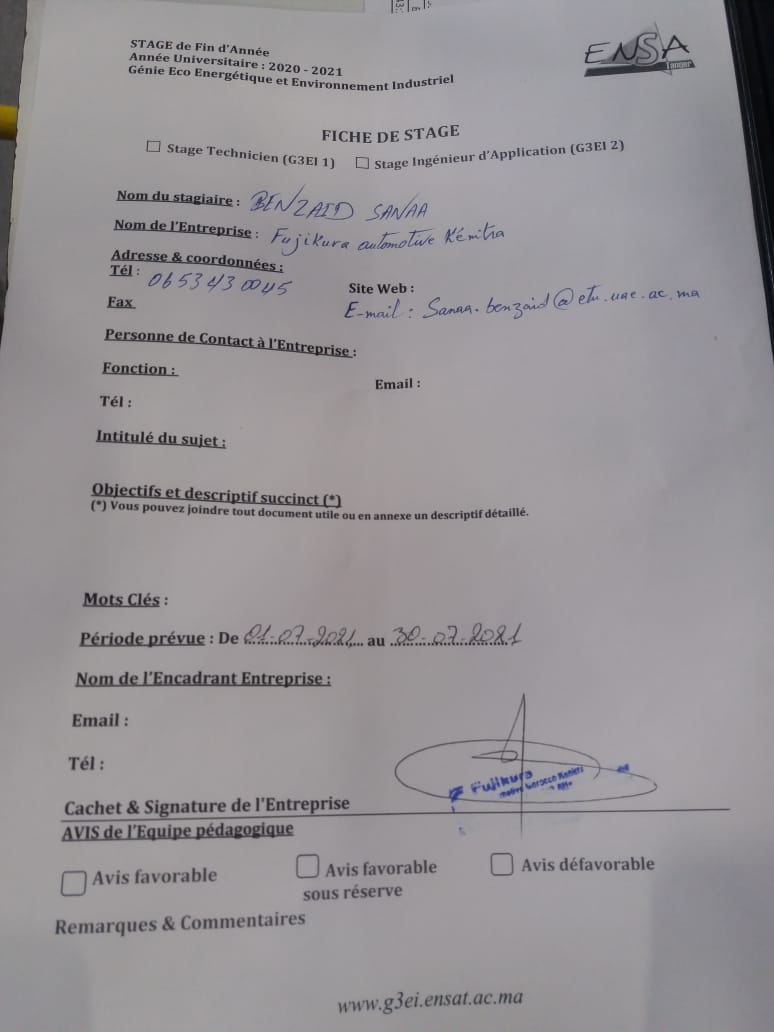 STAGE de Fin d'Année
Année Universitaire : 2020 - 2021
Génie Eco Energétique et Environnement Industriel
ENSA
Tanger
FICHE DE STAGE
Stage Technicien (G3EI 1) Stage Ingénieur d'Application (G3EI 2)
Nom du stagiaire : BENZAID SANAA
Nom de l'Entreprise : Fujikura automotive Kénitra
Adresse & coordonnées :
Tél : 0653430045 Site Web :
Fax E-mail : Sanaa.benzaid@etu.uae.ac.ma
Personne de Contact à l'Entreprise :
Fonction : Email :
Tél :
Intitulé du sujet :
Objectifs et descriptif succinct (*)
(*) Vous pouvez joindre tout document utile ou en annexe un descriptif détaillé.
Mots Clés :
Période prévue : De 01-07-2021 au 30-07-2021
Nom de l'Encadrant Entreprise :
Email :
Tél :
Fujikura
Morocco
Cachet & Signature de l'Entreprise
AVIS de l'Equipe pédagogique
Avis favorable Avis favorable sous réserve Avis défavorable
Remarques & Commentaires
www.g3ei.ensat.ac.ma